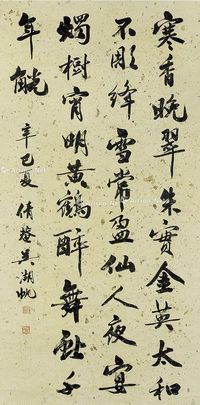 寒香晚翠朱實金英太和
不彫絳雪常盈仙人夜宴
燭樹宵明黃鶴醉舞酡千
年觥
辛巳夏倩菴吳湖帆